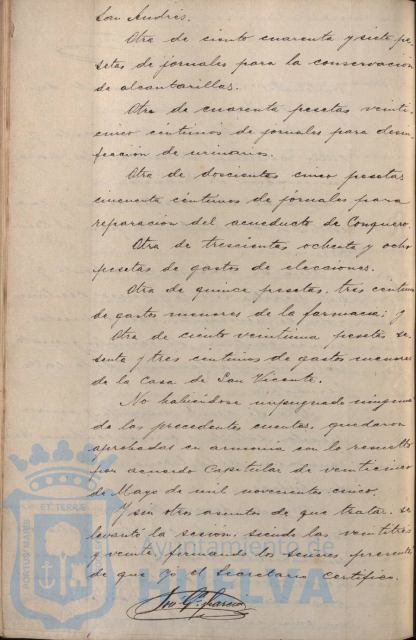 San Andrés.
Otra de ciento cuarenta y siete pe-
setas de jornales para la conservación
de alcantarillas.
Otra de cuarenta pesetas veinti-
cinco céntimos de jornales para desin-
fección de urinarios.
Otra de doscientas cinco pesetas
cincuenta céntimos de jornales para
reparación del acueducto de Conquero.
Otra de trescientas ochenta y ocho
pesetas de gastos de elecciones.
Otra de quince pesetas, tres céntimos
de gastos menores de la farmacia; y
Otra de ciento veintiuna pesetas se-
senta y tres céntimos de gastos menores
de la Casa de San Vicente.
No habiéndose impugnado ninguna
de las precedentes cuentas, quedaron
aprobadas en armonía con lo resuelto
por acuerdo Capitular de veinticinco
de Mayo de mil novecientos cinco.
Y sin otros asuntos de que tratar, se
levantó la sesión, siendo las veintitrés
y veinte, firmando los Señores presentes
de que yo el Secretario certifico.
Ayuntamiento de
HUELVA
PORTUS MARIS
ET TERRE